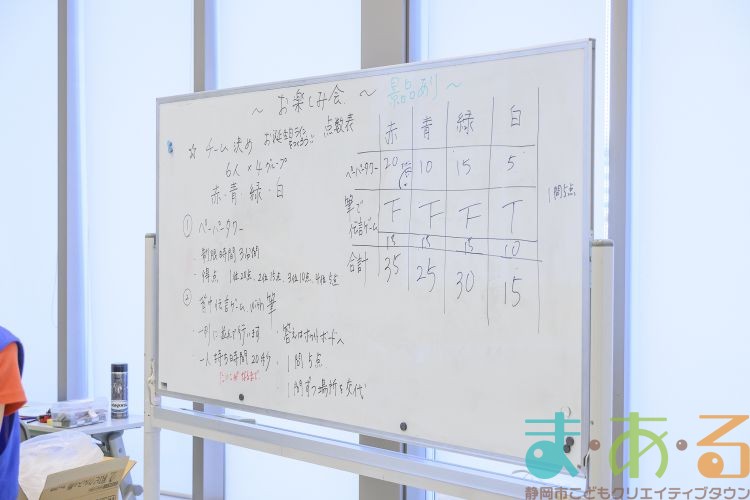 ～ お楽しみ会 ～ 景品あり ～
☆ チーム決め
6人 × 4グループ
赤・青・緑・白
① ペーパータワー
・制限時間 3分間
・得点 1位20点、2位15点、3位10点、4位5点
② 背中伝言ゲーム with 筆
・一列に並んで行います
・一人持ち時間 20秒
・答えはホワイトボードへ
・1問 5点
・1問ずつ場所を交代
点数表
赤 青 緑 白
ペーパータワー 20 10 15 5
筆で伝言ゲーム 下 下 下 T
15 15 15 10
合計 35 25 30 15
1問5点
ま・あ・る
静岡市こどもクリエイティブタウン